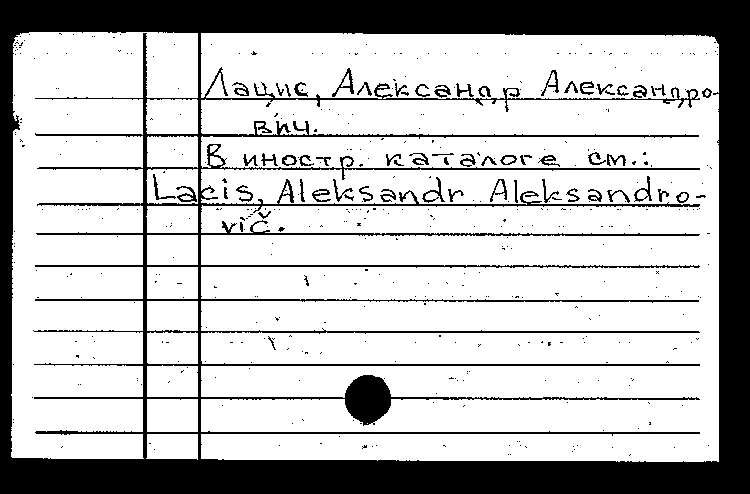 Лацис, Александр Александро-
вич.
В иностр. каталоге см.:
Lacis, Aleksandr Aleksandro-
vič.